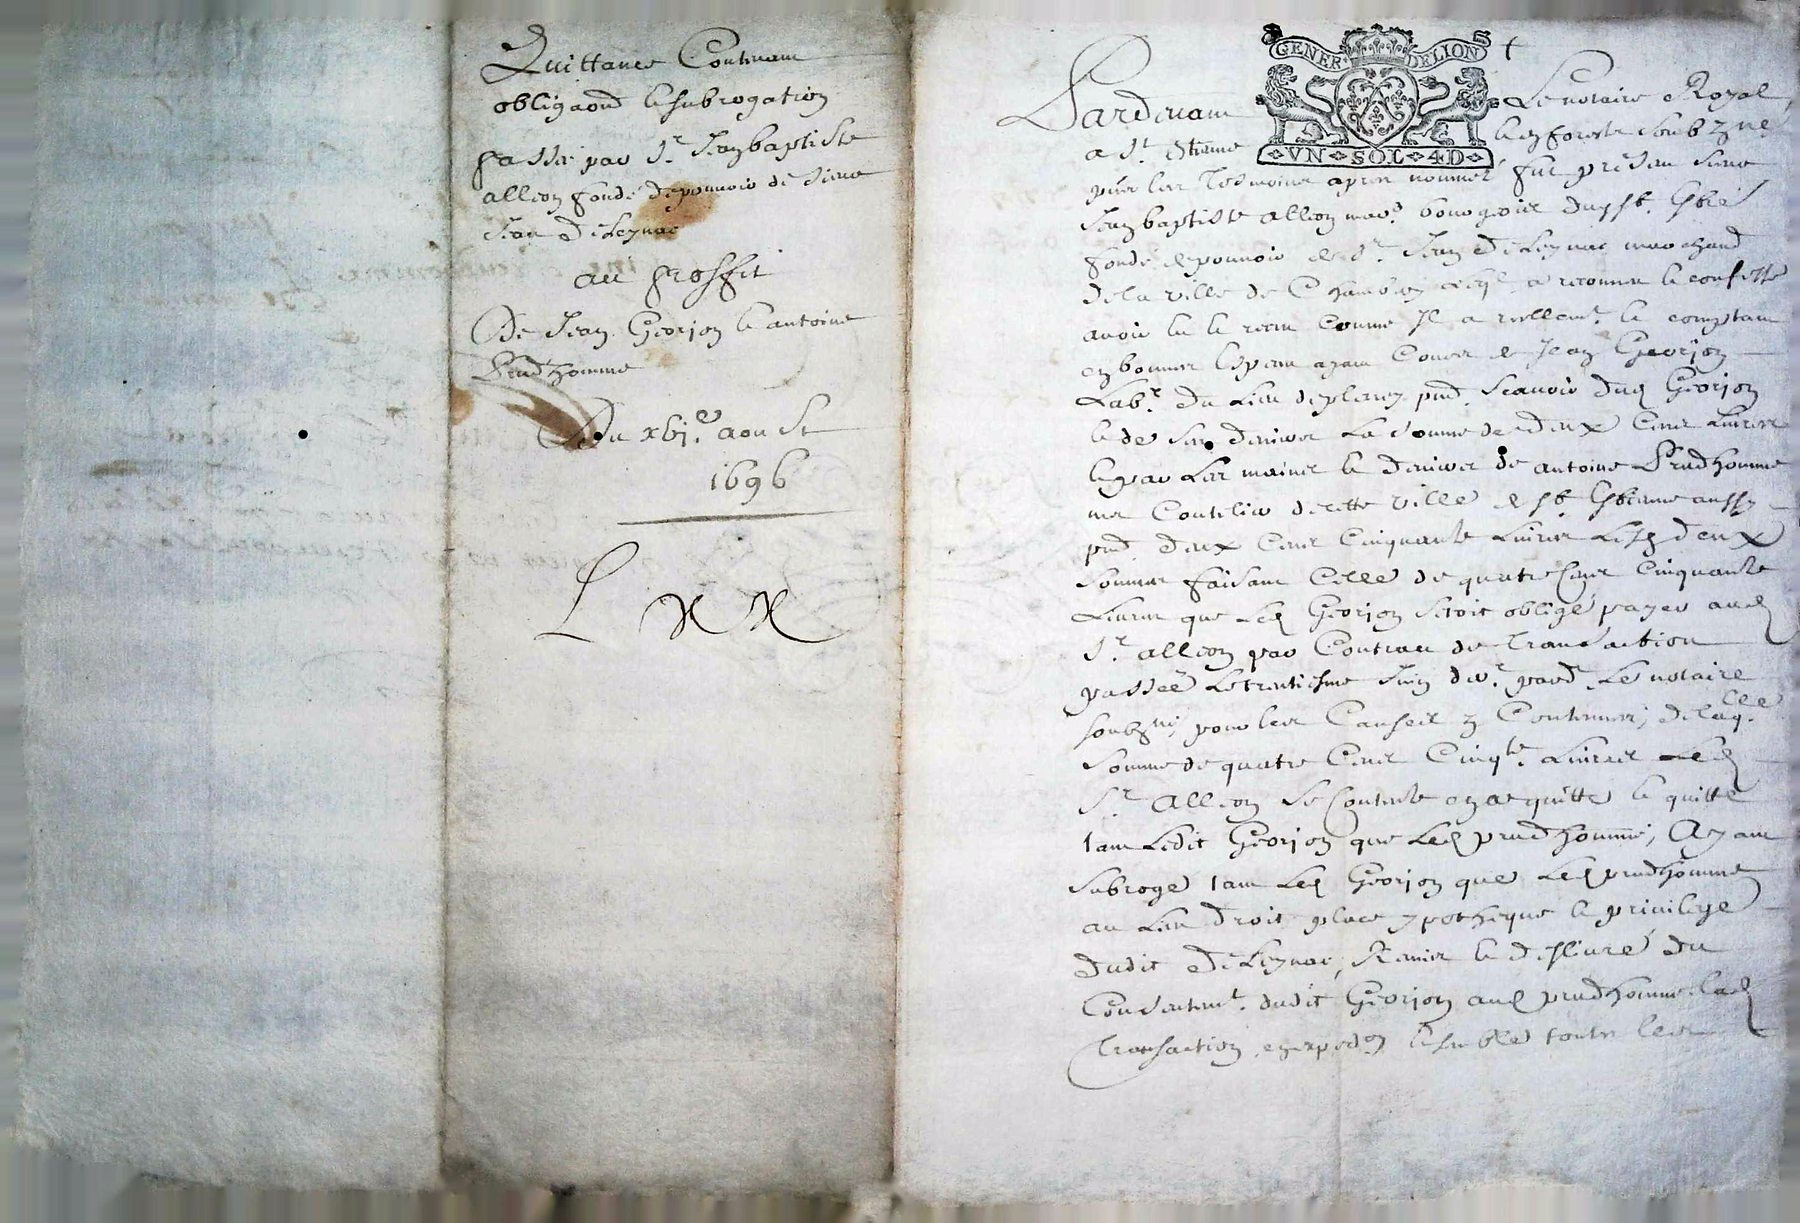 Quittance Contenant
obligaõn & subrogation
passée par Sr Jean baptiste
alleon fondé de pouvoir de sieur
Jean Deleynac
au proffit
De Jean Georjon & antoine
Prudhomme
Du xbje aoust
1696
L x x
GENER DELION
VN SOL 4D
Pardevant Le notaire Royal
a St Estienne & en forests soubzne
& les tesmoins apres nommés fut present sieur
Jean baptiste alleon mar. bourgeois dud st. Estie
fondé de pouvoir de Sr Jean Deleynac marchand
de la ville de Chambery a reconneu & confesse
avoir eu & receu comme Il a reellemt & comptant
en bonnes especes ayant Cours de Jean Georjon
Labr du Lieu de pnt scavoir dud Georjon
& de ses deniers La somme de deux Cent Livres
& par Les mains & deniers de antoine Prudhomme
me Coutelier de cette ville de st. Estienne aussy
pnt deux Cent Cinquante Livres Lesd deux
sommes faisant Celle de quatre Cent Cinquante
Livres que Led Georjon sestoit obligé payer aud
Sr alleon par Contrat de transaction
passée Le trentiesme Juin der pard Le notaire
soubzné pour les Causes y Contenues, de laqlle
somme de quatre Cent Cinqte Livres Led
Sr Alleon se Contente en acquitte & quitte
tant Ledit Georjon que Led prudhomme, Ayant
subrogé tant Led Georjon que Led prudhomme
au Lieu droit place ypotheque & privilege
dudit Deleynac, Remis & deslivré du
Consentemt dudit Georjon aud prudhomme Lad
transaction en expedon Ensemble toutes les